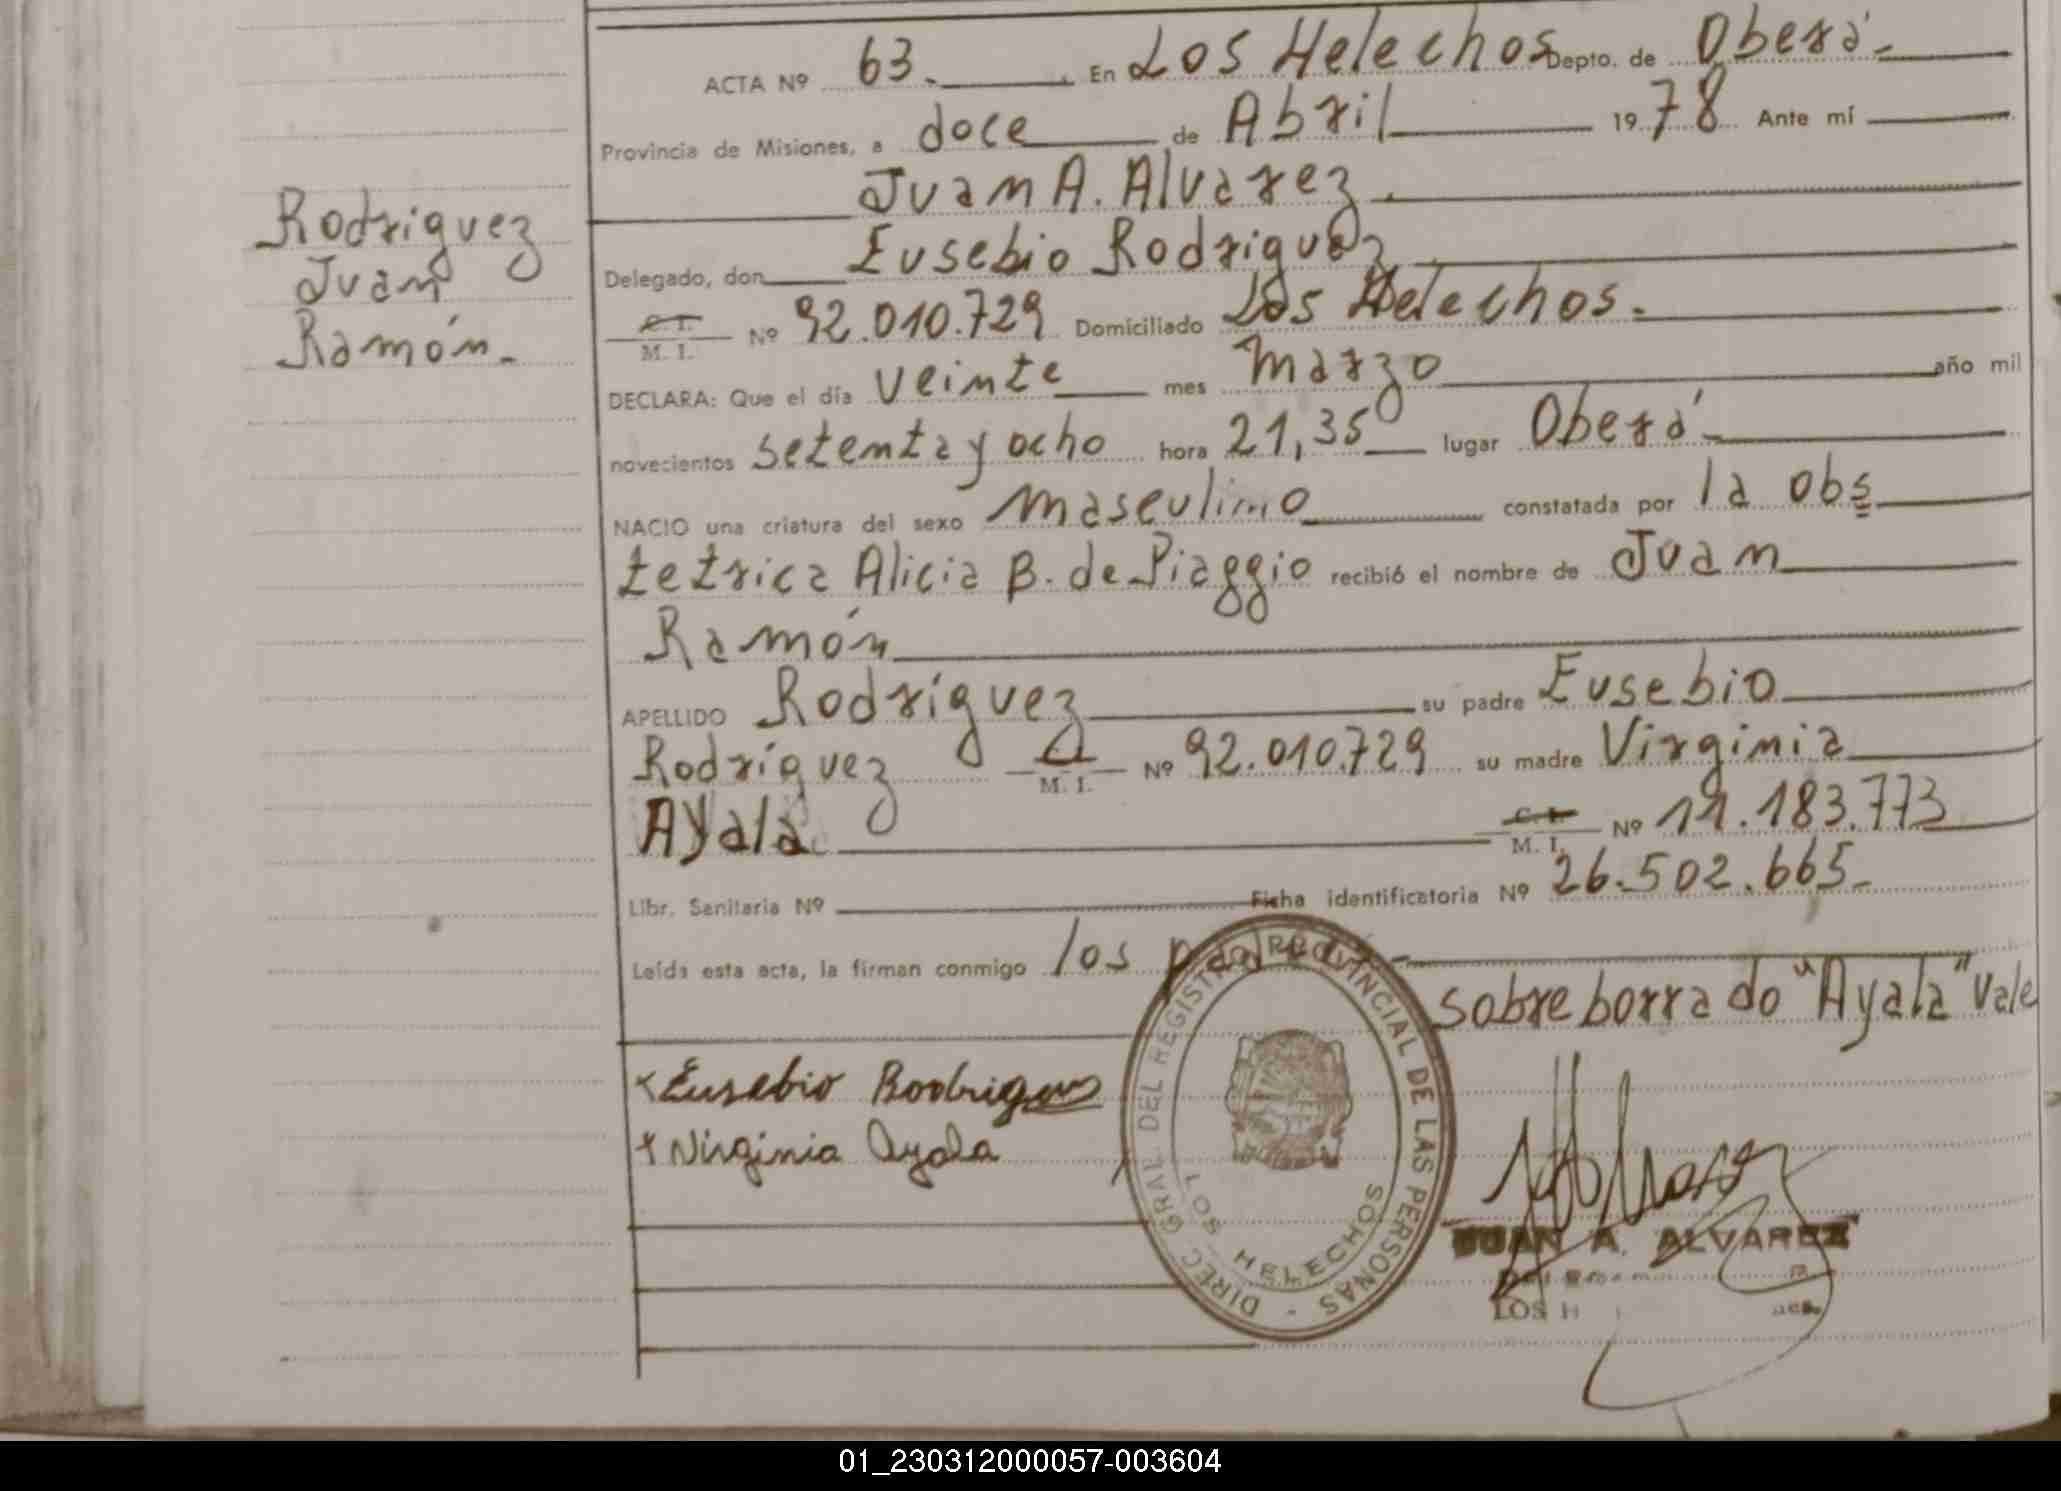 ACTA Nº 63. En Los Helechos Depto. de Oberá
Provincia de Misiones, a doce de Abril 1978 Ante mí
Juan A. Alvarez
Rodriguez
Juan
Ramón
Delegado, don Eusebio Rodriguez
C. I.
M. I. Nº 92.010.729 Domiciliado Los Helechos.
DECLARA: Que el día veinte mes marzo año mil
novecientos setenta y ocho hora 21,35 lugar Oberá
NACIO una criatura del sexo masculino constatada por la obs
tetrica Alicia B. de Piaggio recibió el nombre de Juan
Ramón
APELLIDO Rodríguez su padre Eusebio
Rodríguez M. I. Nº 92.010.729 su madre Virginia
Ayala C. I. M. I. Nº 11.183.773
Libr. Sanitaria Nº Ficha identificatoria Nº 26.502.665
Leída esta acta, la firman conmigo los padres
sobreborrado "Ayala" Vale
Eusebio Rodrigues
Virginia Ayala
DIREC. GRAL DEL REGISTRO PROVINCIAL DE LAS PERSONAS -
LOS HELECHOS
JUAN A. ALVAREZ
LOS H
01_230312000057-003604